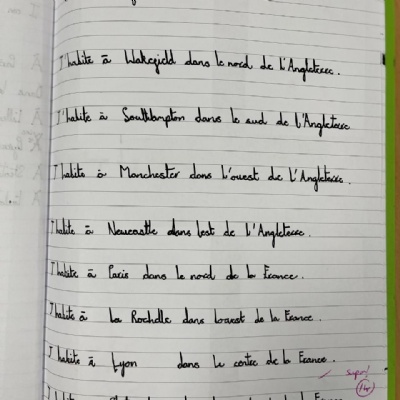 J'habite à Wakefield dans le nord de l'Angleterre.
J'habite à Southampton dans le sud de l'Angleterre
J'habite à Manchester dans l'ouest de l'Angleterre.
J'habite à Newcastle dans l'est de l'Angleterre.
J'habite à Paris dans le nord de la France.
J'habite à La Rochelle dans l'ouest de la France.
J'habite à Lyon dans le centre de la France.
super!
14